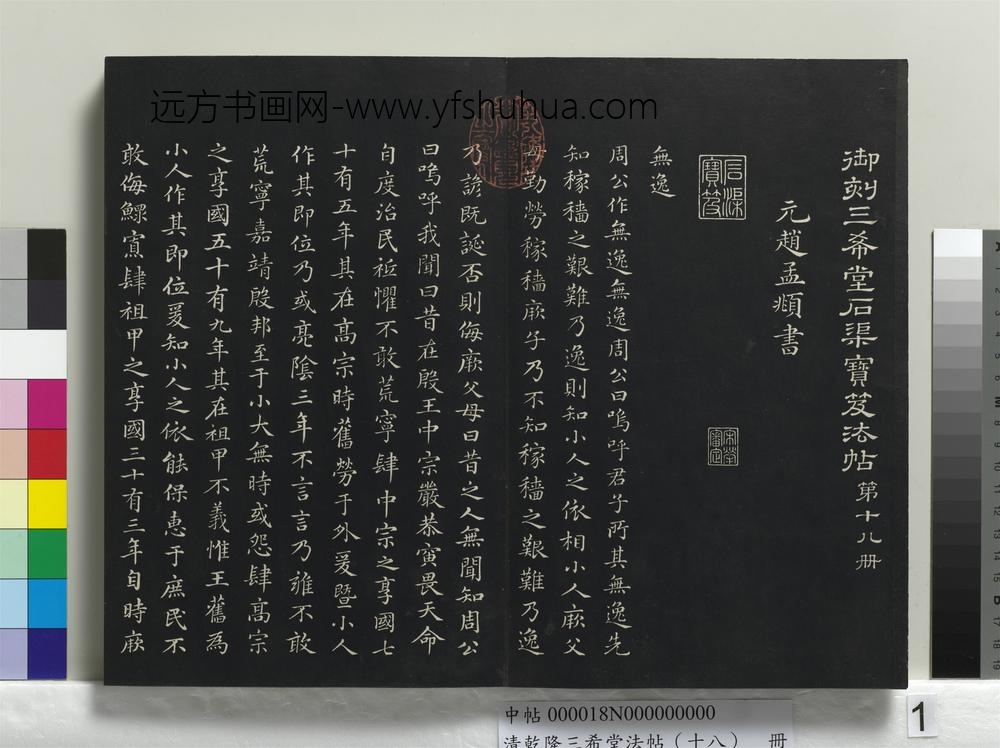 远方书画网-www.yfshuhua.com
御刻三希堂石渠寶笈法帖 第十八册
元趙孟頫書
石渠寶笈
宋犖審定
無逸
周公作無逸無逸周公曰嗚呼君子所其無逸先
知稼穡之艱難乃逸則知小人之依相小人厥父
母勤勞稼穡厥子乃不知稼穡之艱難乃逸
乃諺既誕否則侮厥父母曰昔之人無聞知周公
曰嗚呼我聞曰昔在殷王中宗嚴恭寅畏天命
自度治民祗懼不敢荒寧肆中宗之享國七
十有五年其在高宗時舊勞于外爰暨小人
作其即位乃或亮陰三年不言言乃雍不敢
荒寧嘉靖殷邦至于小大無時或怨肆高宗
之享國五十有九年其在祖甲不義惟王舊為
小人作其即位爰知小人之依能保惠于庶民不
敢侮鰥寡肆祖甲之享國三十有三年自時厥
中帖 000018N000000000
清乾隆三希堂法帖（十八） 册
1